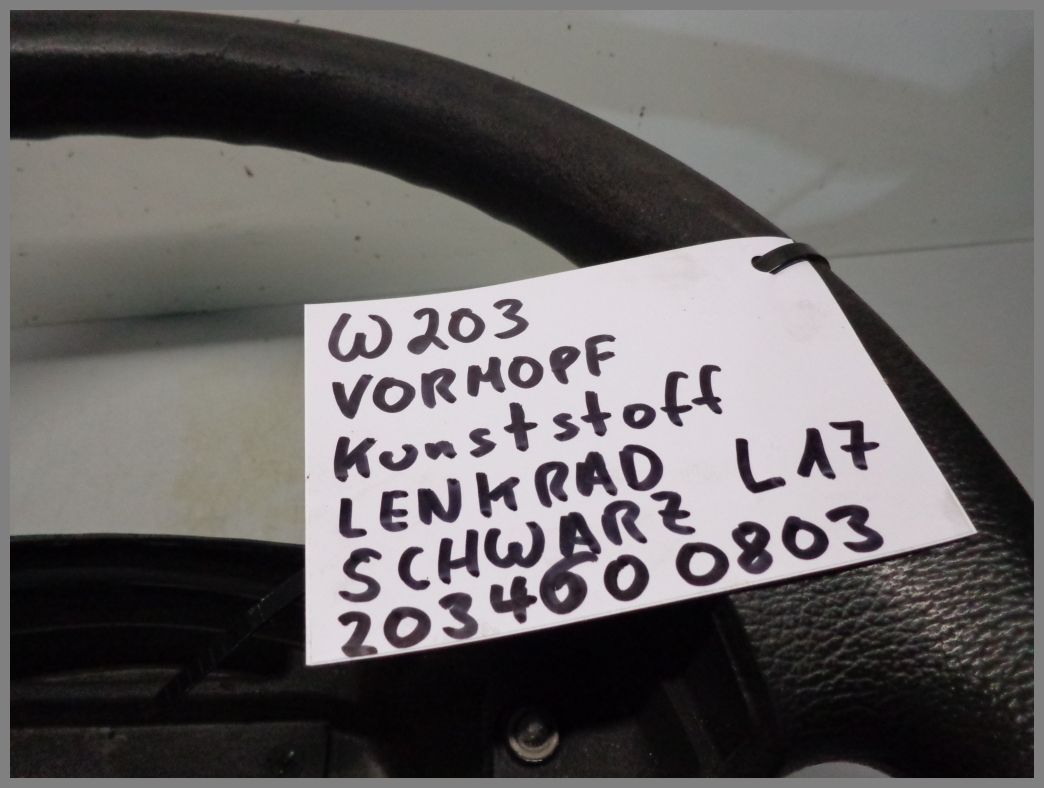 W203
VORMOPF
Kunststoff
LENKRAD L17
SCHWARZ
203460 0803